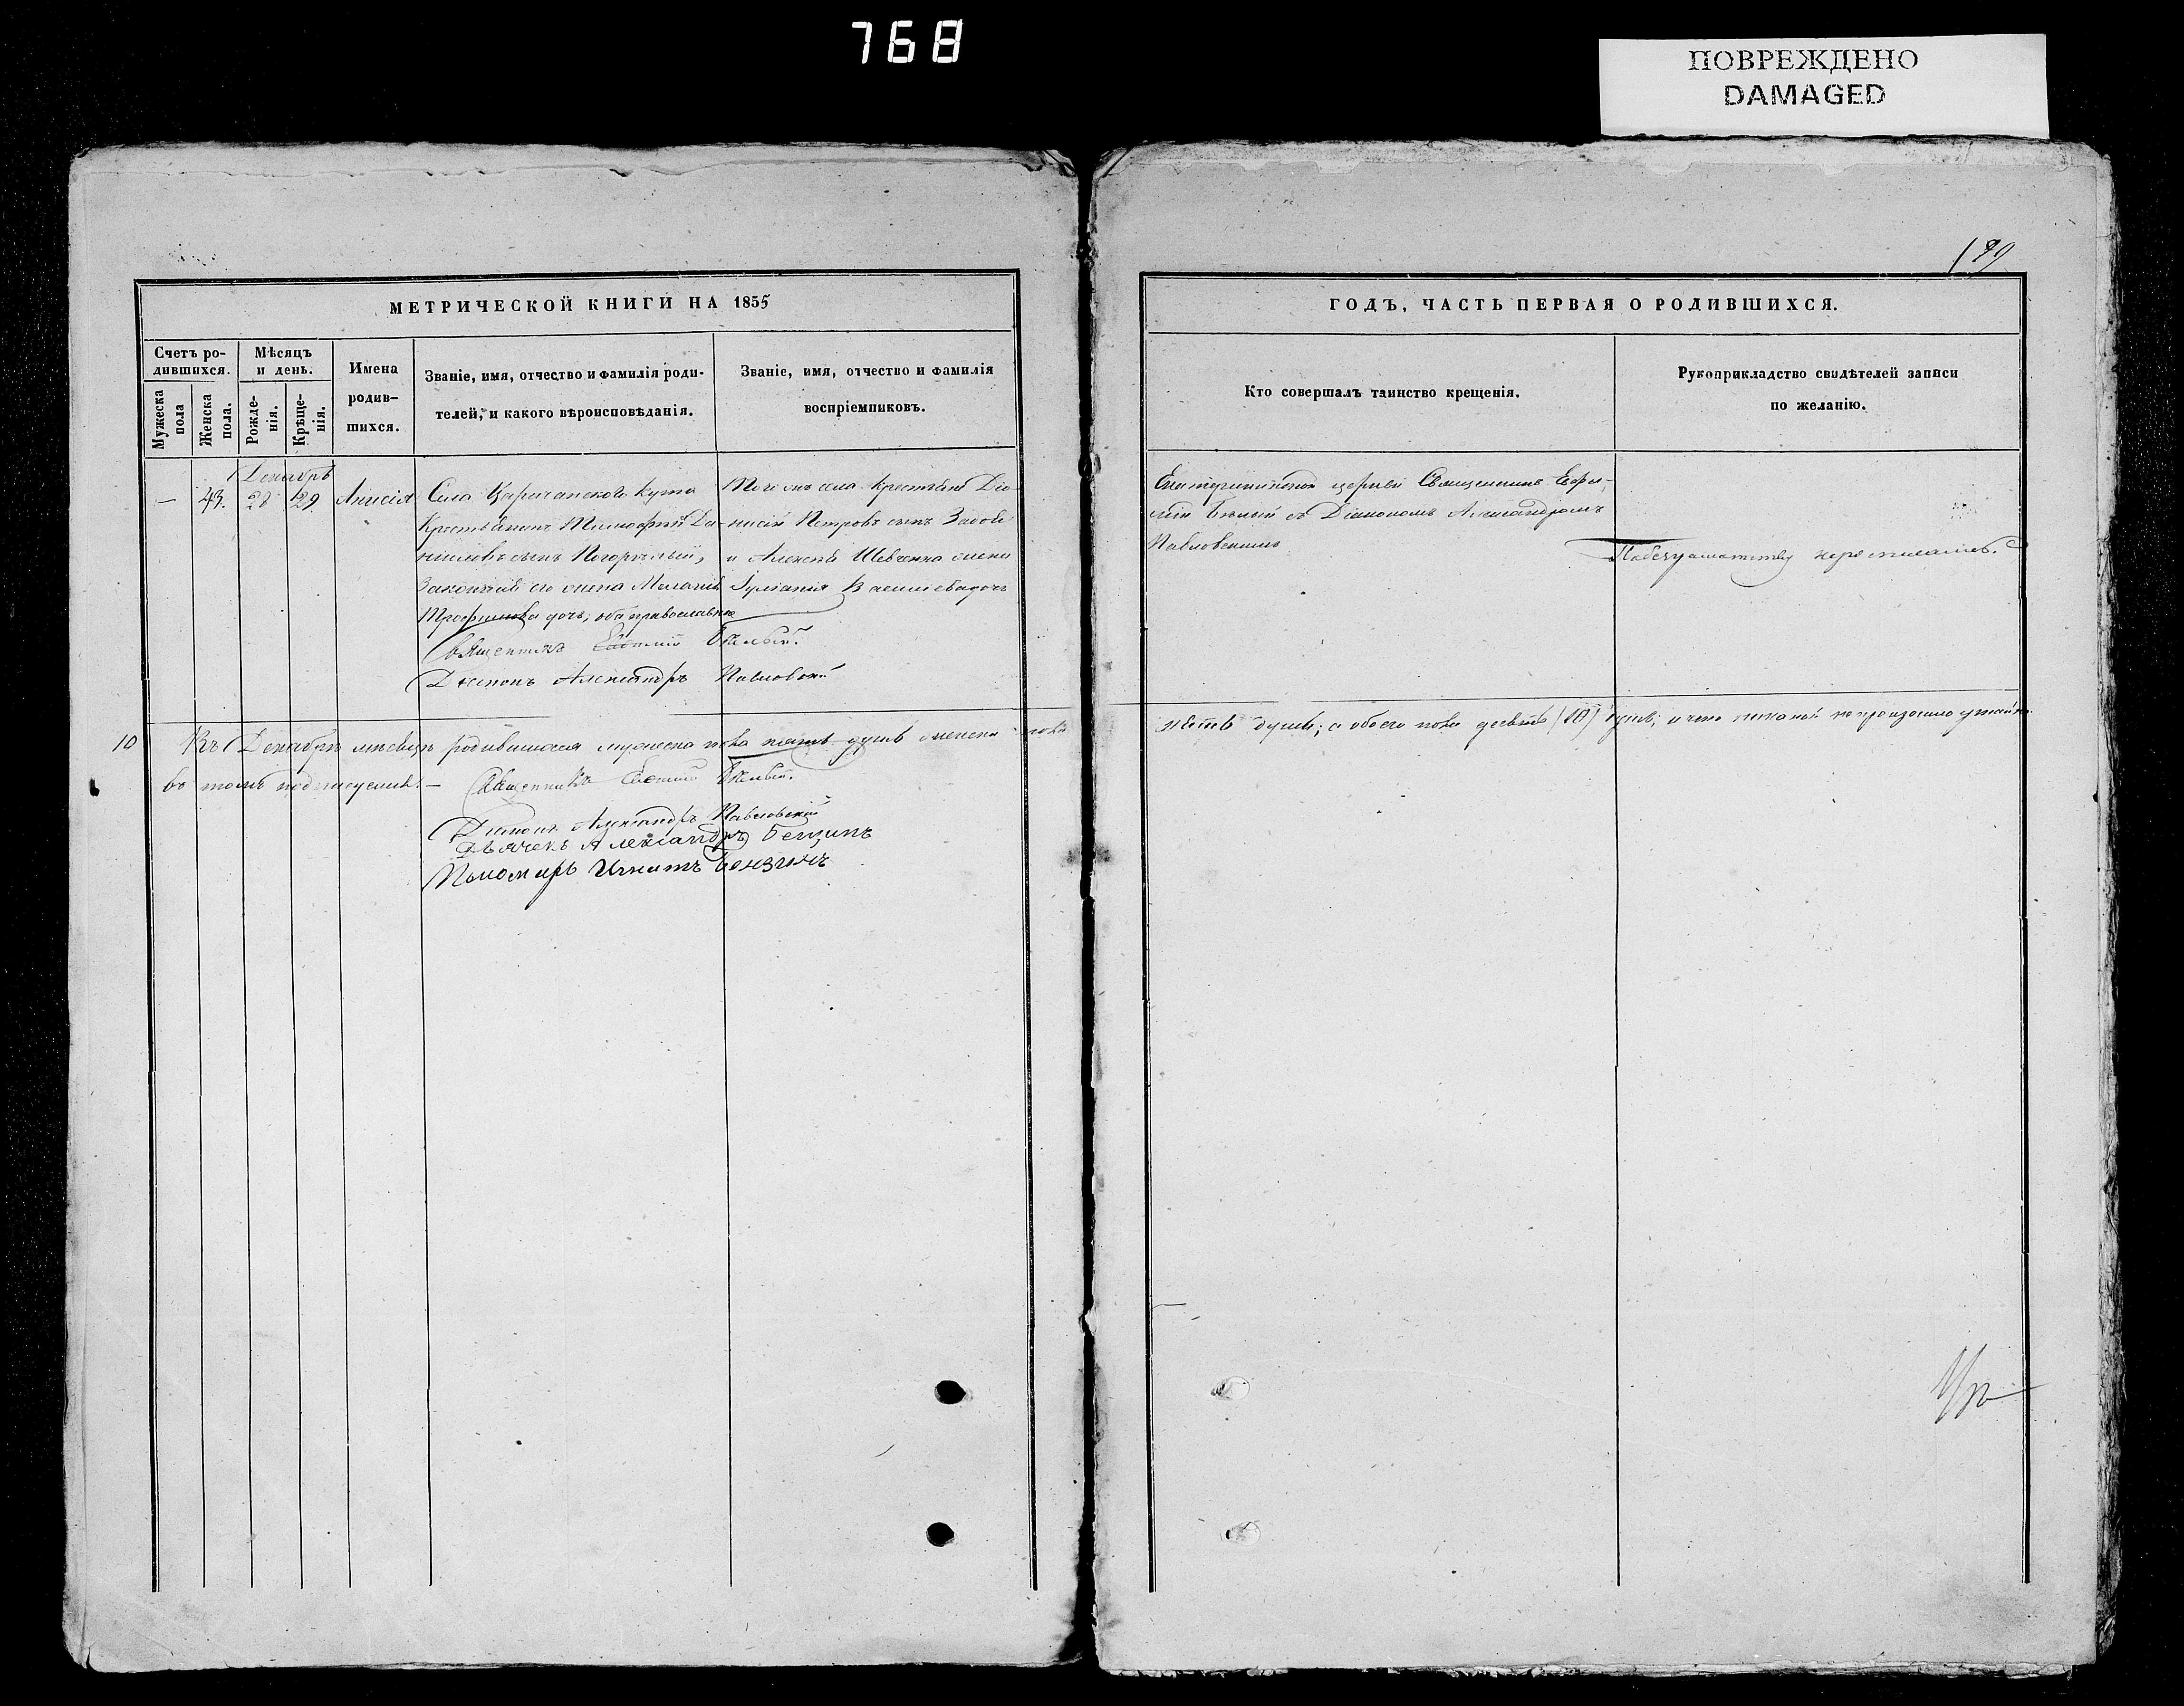 768
ПОВРЕЖДЕНО
DAMAGED
МЕТРИЧЕСКОЙ КНИГИ НА 1855
Счетъ ро-
дившихся.
Мужеска
пола
Женска
пола.
Мѣсяцъ
и день.
Рожде-
нія.
Крѣще-
нія.
Имена
родив-
шихся.
Званіе, имя, отчество и фамилія роди-
телей, и какого вѣроисповѣданія.
Званіе, имя, отчество и фамилія
воспріемниковъ.
Декабрь
— 43. 28 29 Анисія
Села Царичанского Кута
Крестьянинъ Тимофей Да-
ніиловъ сынъ Погорѣлый,
Законная его жена Меланія
Трофимова дочь, оба православные
Священникъ Евфимій Бѣлый.
Діаконъ Александръ Павловскій
села крестьянинъ Діо-
нисій Петровъ сынъ
и Алексѣя Шевченка жена
Іуліанія Василіева дочь
10 Въ Декабрѣ мѣсяцѣ родившихся мужеска пола пять душъ женска пола
въ томъ подписуемся.— Священникъ Евфимій Бѣлый.
Діаконъ Александръ Павловскій
Дьячекъ Александръ Бензинъ
Пономарь Игнатъ Бензинъ
ГОДЪ, ЧАСТЬ ПЕРВАЯ О РОДИВШИХСЯ.
Кто совершалъ таинство крещенія.
Рукоприкладство свидѣтелей записи
по желанію.
Екатерининской церкви Священникъ Евфи-
мій Бѣлый съ Діакономъ Александромъ
Павловскимъ
душъ; а обоего пола десять (10) душъ;